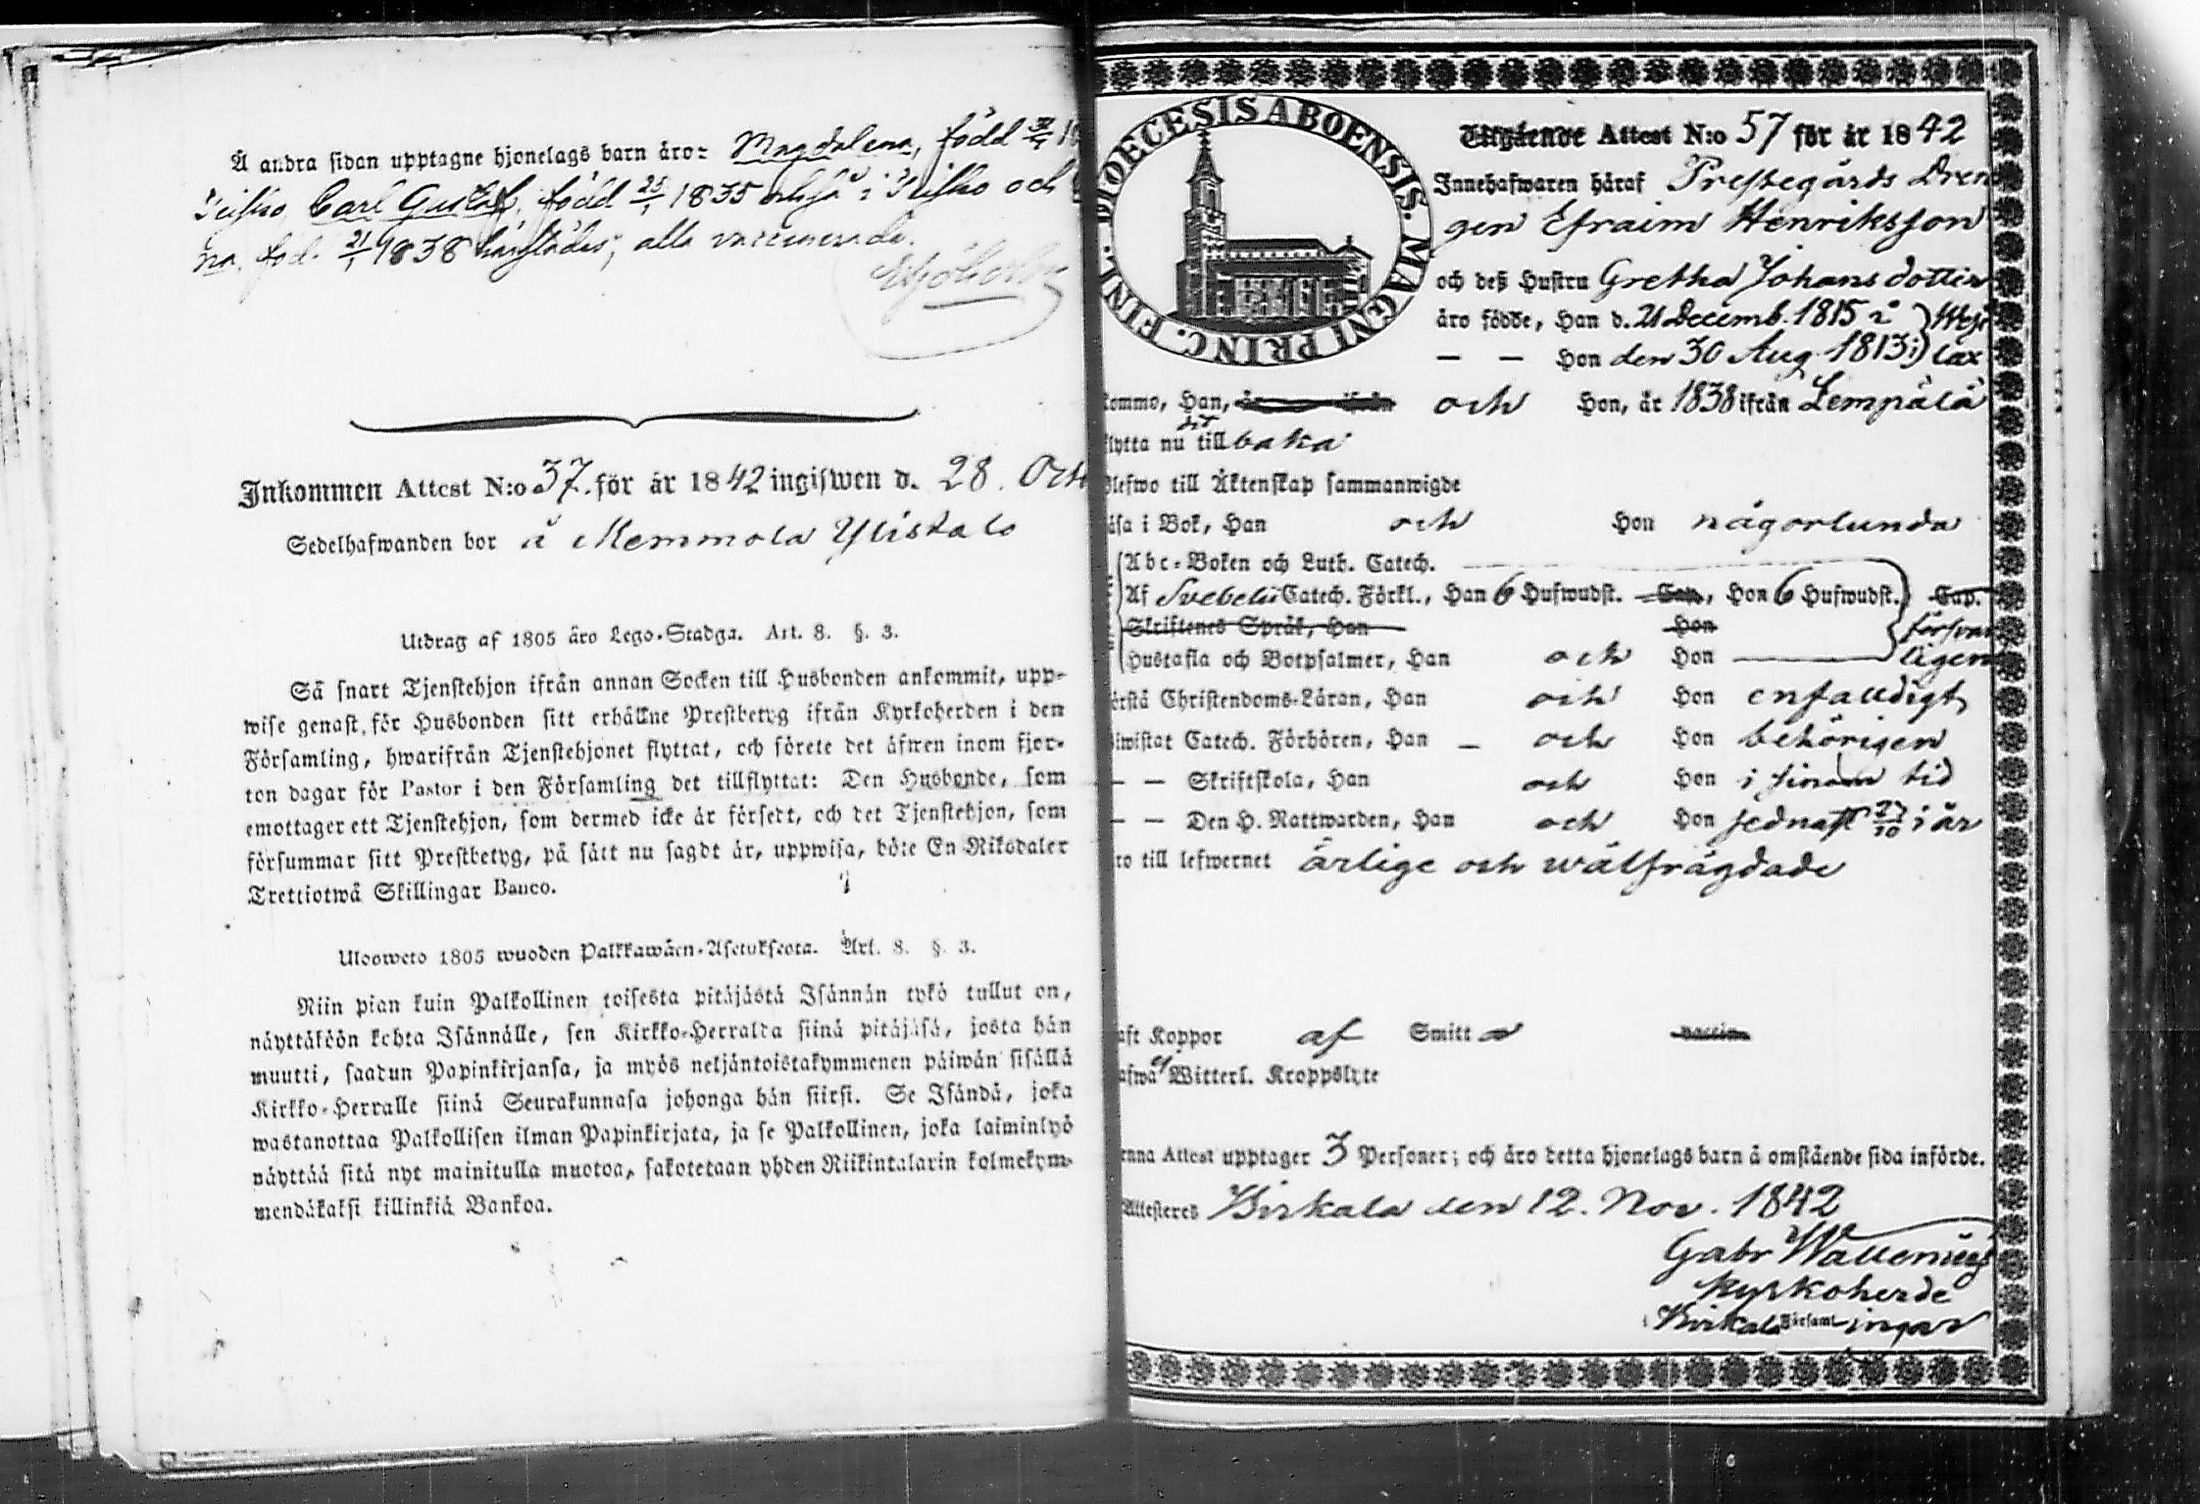 Å andra sidan upptagne hjonelags barn äro: Magdalena, född
Carl Gustaf, född 25/1 1835 också i och
na, föd. 21/1 1838 härstädes; alla vaccinerade.
Inkommen Attest N:o 37. för år 1842 ingifwen d. 28. Oct
Sedelhafwanden bor å Memmola Ylistalo
Utdrag af 1805 års Lego-Stadga. Art. 8. §. 3.
Så snart Tjenstehjon ifrån annan Socken till Husbonden ankommit, upp-
wise genast för Husbonden sitt erhållne Prestbetyg ifrån Kyrkoherden i den
Församling, hwarifrån Tjenstehjonet flyttat, och förete det äfwen inom fjor-
ton dagar för Pastor i den Församling det tillflyttat: Den Husbonde, som
emottager ett Tjenstehjon, som dermed icke är försedt, och det Tjenstehjon, som
försummar sitt Prestbetyg, på sätt nu sagdt är, uppwisa, böte En Riksdaler
Trettiotwå Skillingar Banco.
Ulosweto 1805 wuoden Palkkawäen-Asetuksesta. Art. 8. §. 3.
Niin pian kuin Palkollinen toisesta pitäjästä Isännän tykö tullut on,
näyttäköön kohta Isännälle, sen Kirkko-Herralda siinä pitäjäsä, josta hän
muutti, saadun Papinkirjansa, ja myös neljäntoistakymmenen päiwän sisällä
Kirkko-Herralle siinä Seurakunnasa johonga hän siirsi. Se Isändä, joka
wastanottaa Palkollisen ilman Papinkirjata, ja se Palkollinen, joka laiminlyö
näyttää sitä nyt mainitulla muotoa, sakotetaan yhden Riikintalarin kolmekym-
mendäkaksi killinkiä Bankoa.
DIOECESIS ABOENSIS. MAGNI PRINC. FINL.
Utgående Attest N:o 57 för år 1842
Innehafwaren häraf Prestegårds Dren
gen Efraim Henriksson
och deß Hustru Gretha Johansdotter
äro födde, Han d. 21 Decemb. 1815 i } Wesi
— — Hon den 30 Aug. 1813 i } lax
kommo, Han, år ifrån och Hon, år 1838 ifrån Lempälä
flytta nu till baka
dit
Blefwo till Äktenskap sammanwigde
äsa i Bok, Han och Hon någorlunda
Abc-Boken och Luth. Catech.
Af Svebelii Catech. Förkl., Han 6 Hufwudst. Cap., Hon 6 Hufwudst. Cap.
Skriftenes Språk, Han Hon försvar
Hustafla och Botpsalmer, Han och Hon ligen
örstå Christendoms-Läran, Han och Hon enfaldigt
iwistat Catech. Förhören, Han — och Hon behörigen
— — Skriftskola, Han och Hon i sinom tid
— — Den H. Nattwarden, Han och Hon sednast 23/10 i år
ro till lefwernet ärlige och wälfrägdade
aft Koppor af Smitta vaccin
afwa ej Witterl. Kroppslyte
enna Attest upptager 3 Personer; och äro detta hjonelags barn å omstående sida införde.
Attesteres Birkala den 12. Nov. 1842
Gabr Wallenius
Kyrkoherde
Birkala Församlingar